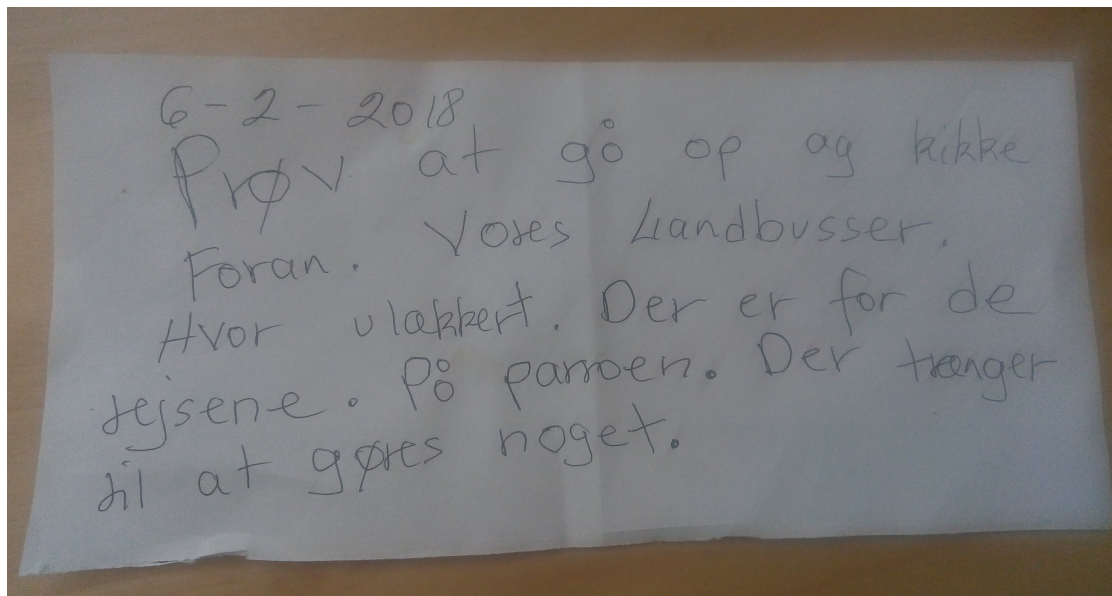 6-2-2018
Prøv at gå op ag kikke
Foran. Vores Landbusser.
Hvor ulakkert. Der er for de
rejsene. På parroen. Der trænger
til at gøres noget.